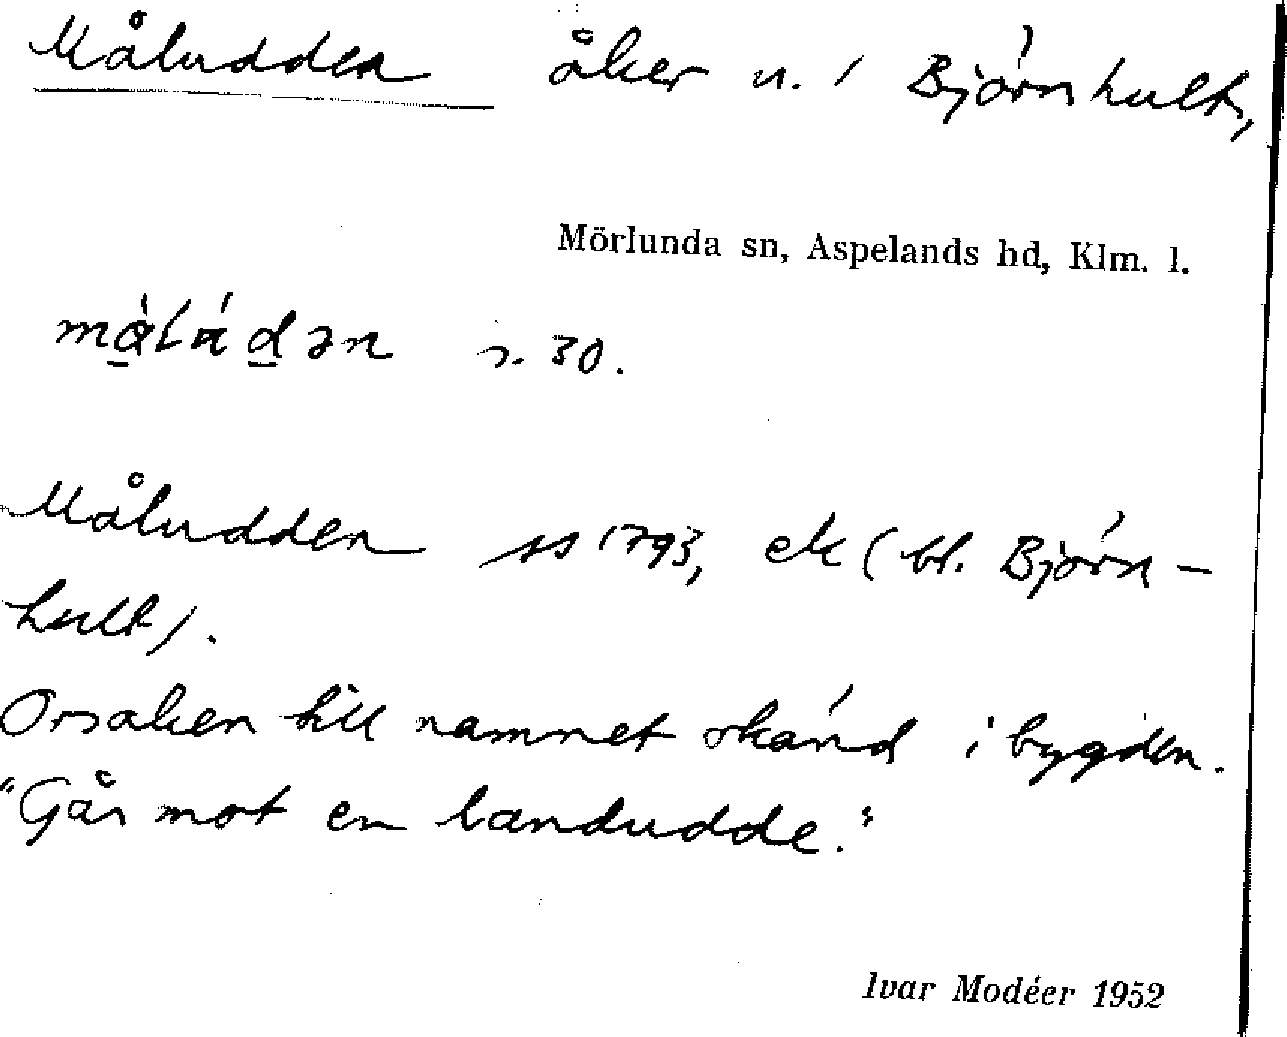 Måludden åker u. / Björnhult,
Mörlunda sn, Aspelands hd, Klm. l.
s. 30.
Måludden ss 1793, ek (bl. Björn-
hult).
Orsaken till namnet okänd i bygden.
"Går mot en landudde."
Ivar Modéer 1952